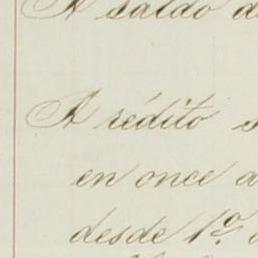 A saldo d
A rédito s
en once a
desde 1º.